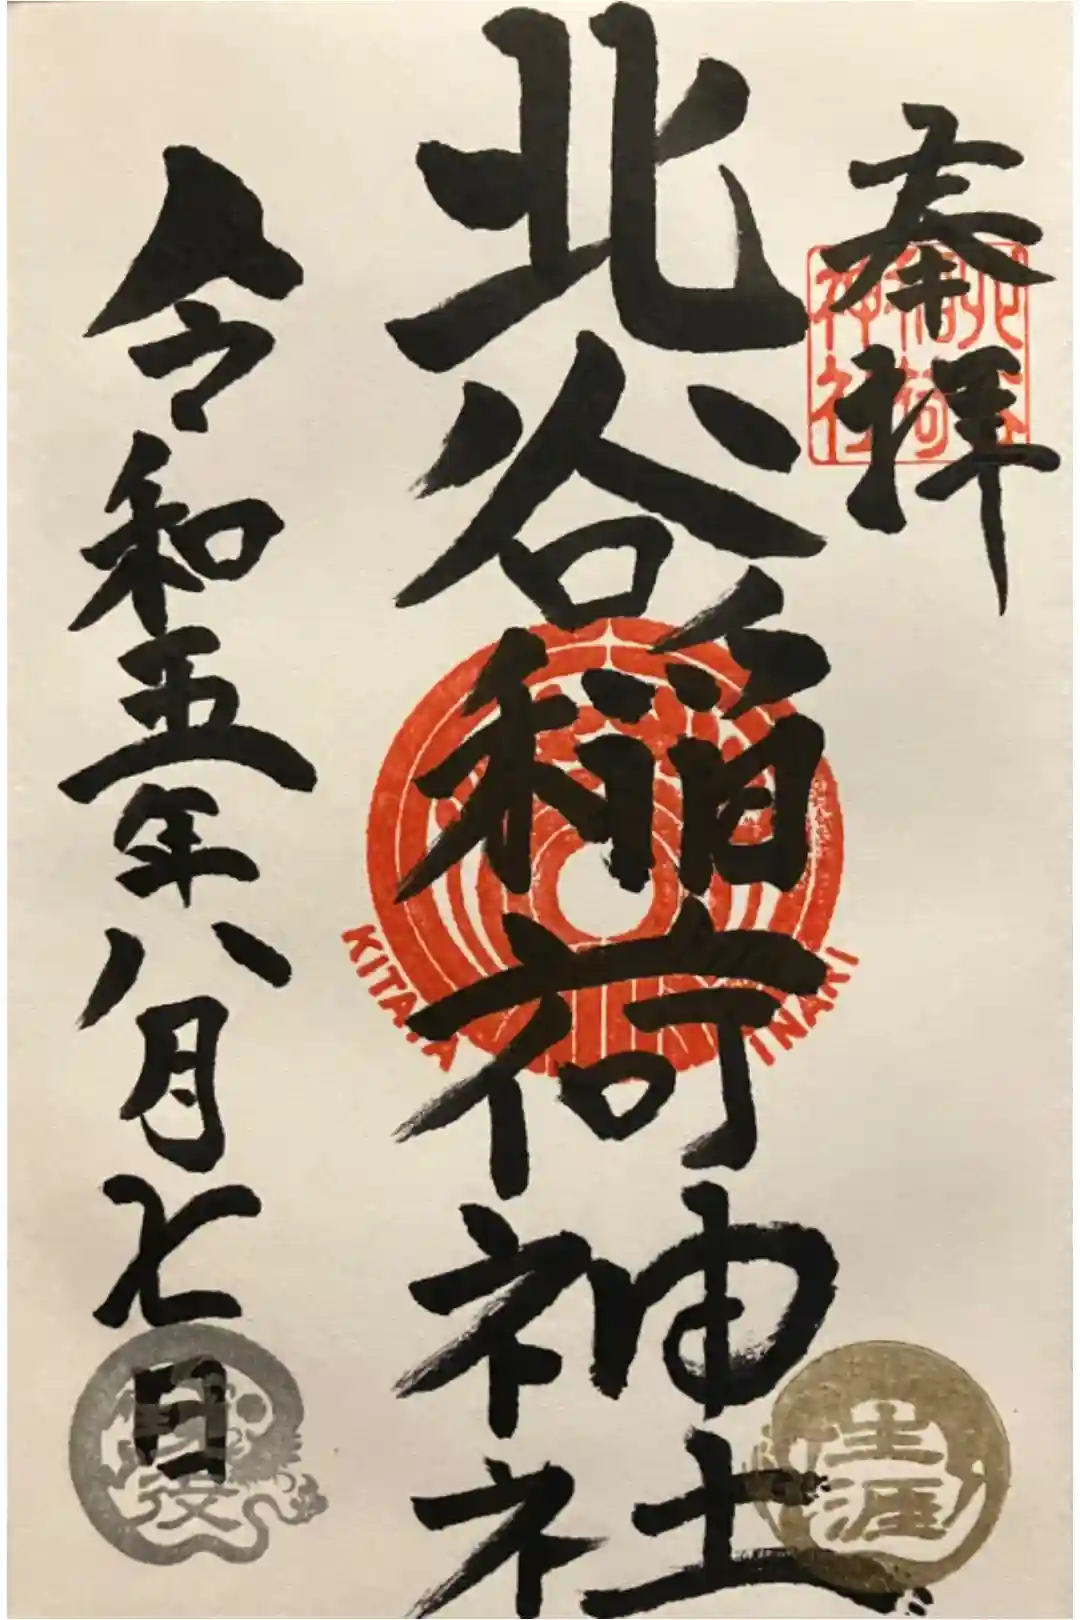 奉拝
北谷稲荷神社
北谷稲荷神社
KITAYA INARI
令和五年八月七日
生涯